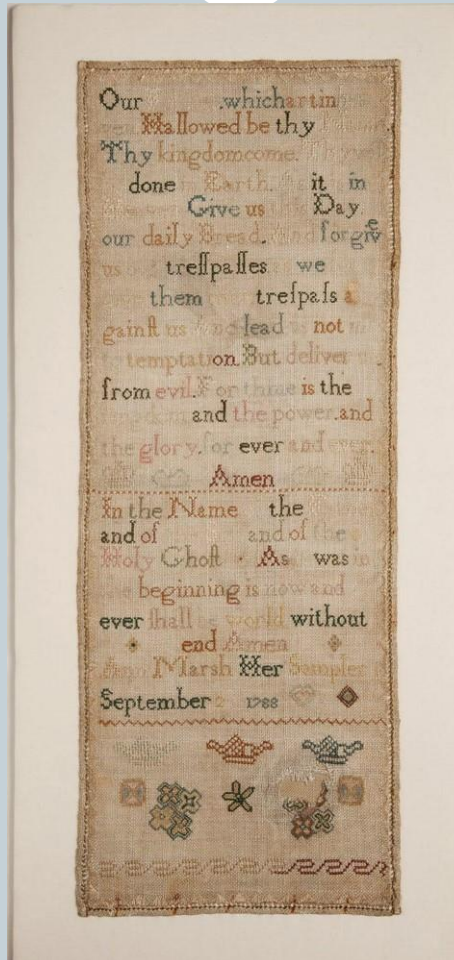 Our which art in
Hallowed be thy
Thy kingdom come. Thy
done Earth. it in
Give us Day
our daily Bread. And forgive
us treſſpaſſes we
them treſpaſs a
gainſt us And lead us not
to temptation. But deliver
from evil. For thine is the
and the power. and
the glory. for ever and ever.
Amen
In the Name the
and of and of the
Holy Ghoſt As was in
beginning is now and
ever ſhall be world without
end Amen
Ann Marsh Her Sampler
September 2 1788